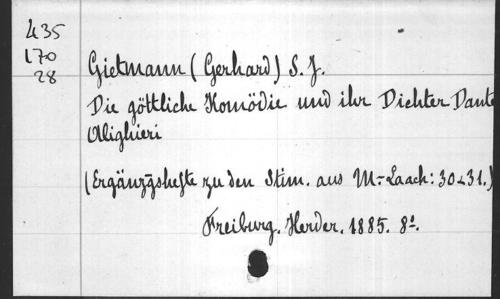 435
170
28
Gietmann (Gerhard) S. J.
Die göttliche Komödie und ihr Dichter Dante
Alighieri
(Ergänzgshefte zu den Stim. aus M.-Laach: 30 & 31.)
Freiburg. Herder. 1885. 8º.